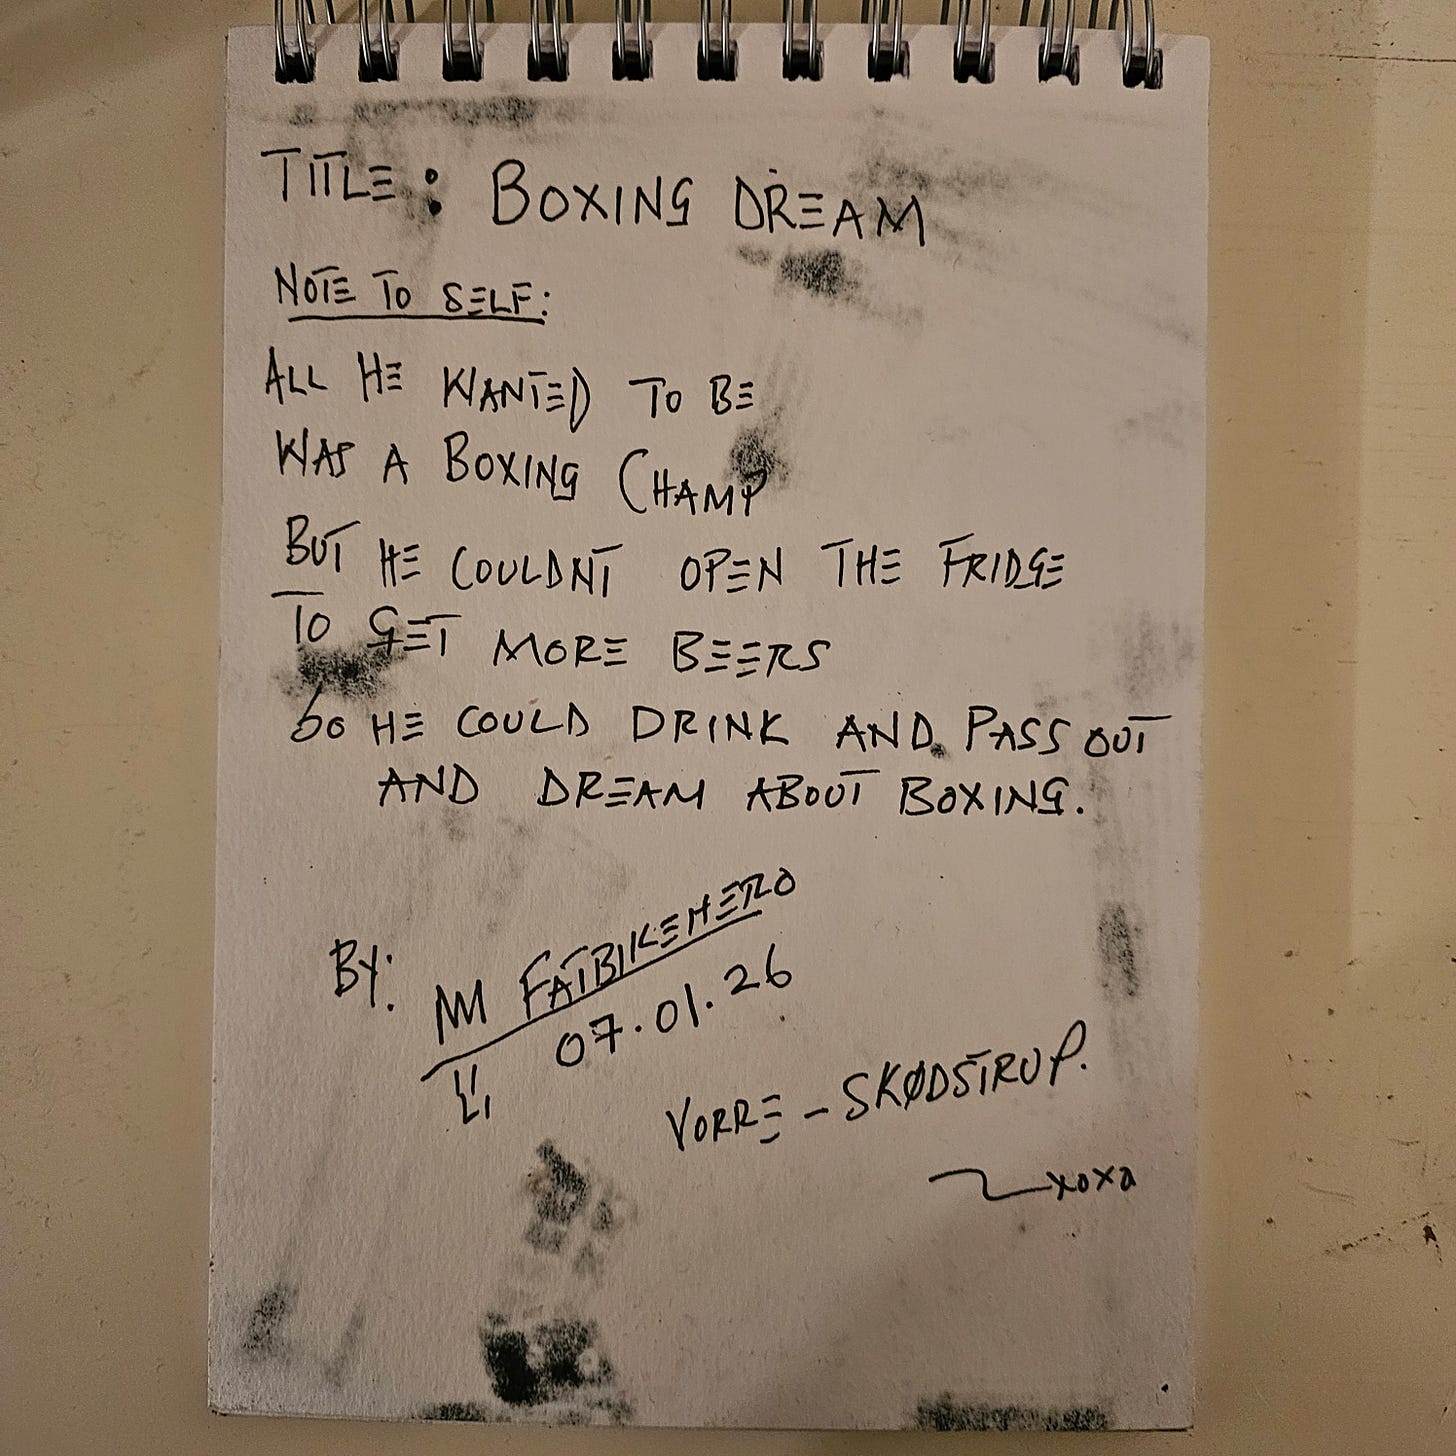 TITLE: BOXING DREAM
NOTE TO SELF:
ALL HE WANTED TO BE
WAS A BOXING CHAMP
BUT HE COULDNT OPEN THE FRIDGE
TO GET MORE BEERS
SO HE COULD DRINK AND PASS OUT
AND DREAM ABOUT BOXING.
BY: FATBIKEHERO
07.01.26
VORRE – SKØDSTRUP.
xoxo